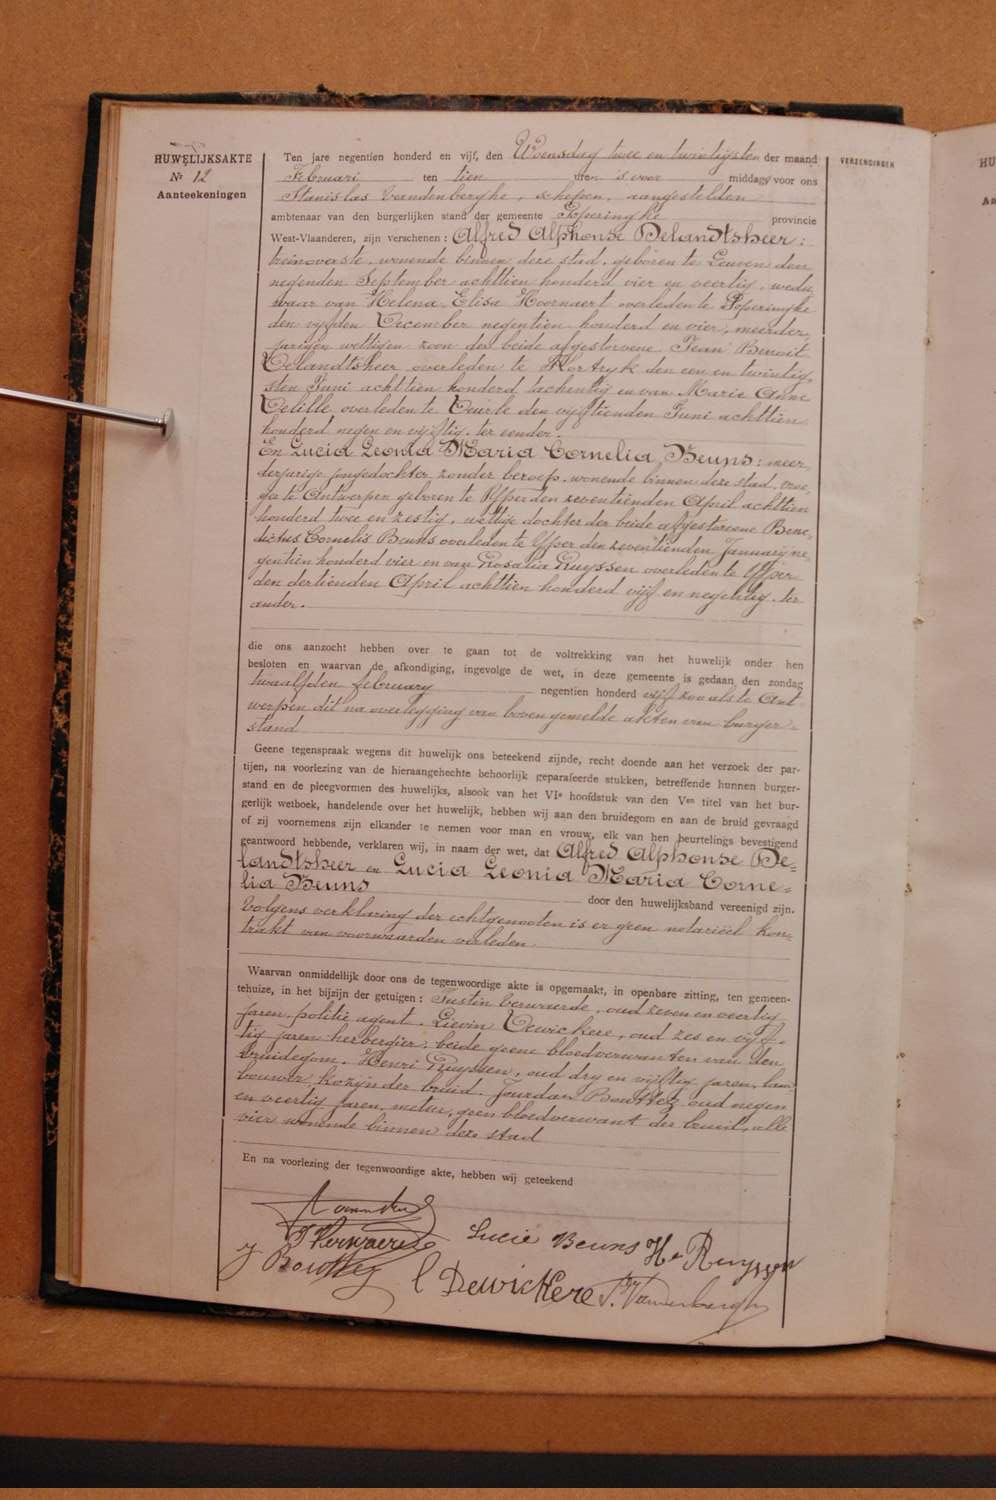 HUWELIJKSAKTE
№ 12
Aanteekeningen
VERZENDINGEN
Ten jare negentien honderd en vijf, den Woensdag twee en twintigsten der maand
Februari ten tien uren 's voor middags voor ons
Stanislas Vandenberghe, schepen, aangestelden
ambtenaar van den burgerlijken stand der gemeente Poperinghe provincie
West-Vlaanderen, zijn verschenen: Alfred Alphonse Delandtsheer:
treinoverste, wonende binnen deze stad, geboren te Leuven den
negenden September achttien honderd vier en veertig, wedu-
waar van Helena Elisa Hoornaert overleden te Poperinghe
den vijfden December negentien honderd en vier, meerder-
jarigen wettigen zoon der beide afgestorvene Jean Benoit
Delandtsheer overleden te Kortryk den een en twintig-
sten Juni achttien honderd tachentig en van Marie Anne
Delille overleden te Deurle den vijftienden Juni achttien
honderd negen en vijftig, ter eender.
En Lucia Leonia Maria Cornelia Beuns: meer-
derjarige jongedochter zonder beroep, wonende binnen deze stad, vroe-
ger te Antwerpen geboren te Ypper den zeventienden April achttien
honderd twee en zestig, wettige dochter der beide afgestorvene Bene-
dictus Cornelis Beuns overleden te Yper den zeventienden January ne-
gentien honderd vier en van Rosalia Ruyssen overleden te Yper
den dertienden April achttien honderd vijf en negentig, ter
ander.
die ons aanzocht hebben over te gaan tot de voltrekking van het huwelijk onder hen
besloten en waarvan de afkondiging, ingevolge de wet, in deze gemeente is gedaan den zondag
twaalfden february negentien honderd vijf zoo als te Ant-
werpen dit na overlegging van boven gemelde akten van burger-
stand
Geene tegenspraak wegens dit huwelijk ons beteekend zijnde, recht doende aan het verzoek der par-
tijen, na voorlezing van de hieraangehechte behoorlijk geparafeerde stukken, betreffende hunnen burger-
stand en de pleegvormen des huwelijks, alsook van het VIe hoofdstuk van den Ven titel van het bur-
gerlijk wetboek, handelende over het huwelijk, hebben wij aan den bruidegom en aan de bruid gevraagd
of zij voornemens zijn elkander te nemen voor man en vrouw, elk van hen beurtelings bevestigend
geantwoord hebbende, verklaren wij, in naam der wet, dat Alfred Alphonse De-
landtsheer en Lucia Leonia Maria Corne-
lia Beuns door den huwelijksband vereenigd zijn.
Volgens verklaring der echtgenooten is er geen notariëel kon-
trakt van voorwaarden verleden.
Waarvan onmiddellijk door ons de tegenwoordige akte is opgemaakt, in openbare zitting, ten gemeen-
tehuize, in het bijzijn der getuigen: Justin Verwaerde, oud zeven en veertig
jaren, politie agent, Lievin Dewickere, oud zes en vijf-
tig jaren herbergier, beide geene bloedverwanten van den
bruidegom. Henri Ruyssen, oud dry en vijftig jaren, lan-
bouwer kozijn der bruid. Jourdan Bouttez oud negen
en veertig jaren, metser, geen bloedverwant der bruid, alle
vier wonende binnen deze stad
En na voorlezing der tegenwoordige akte, hebben wij geteekend
J Verwaerde
Lucie Beuns
He Ruyssen
J Bouttez
L Dewickere
S. Vandenberghe